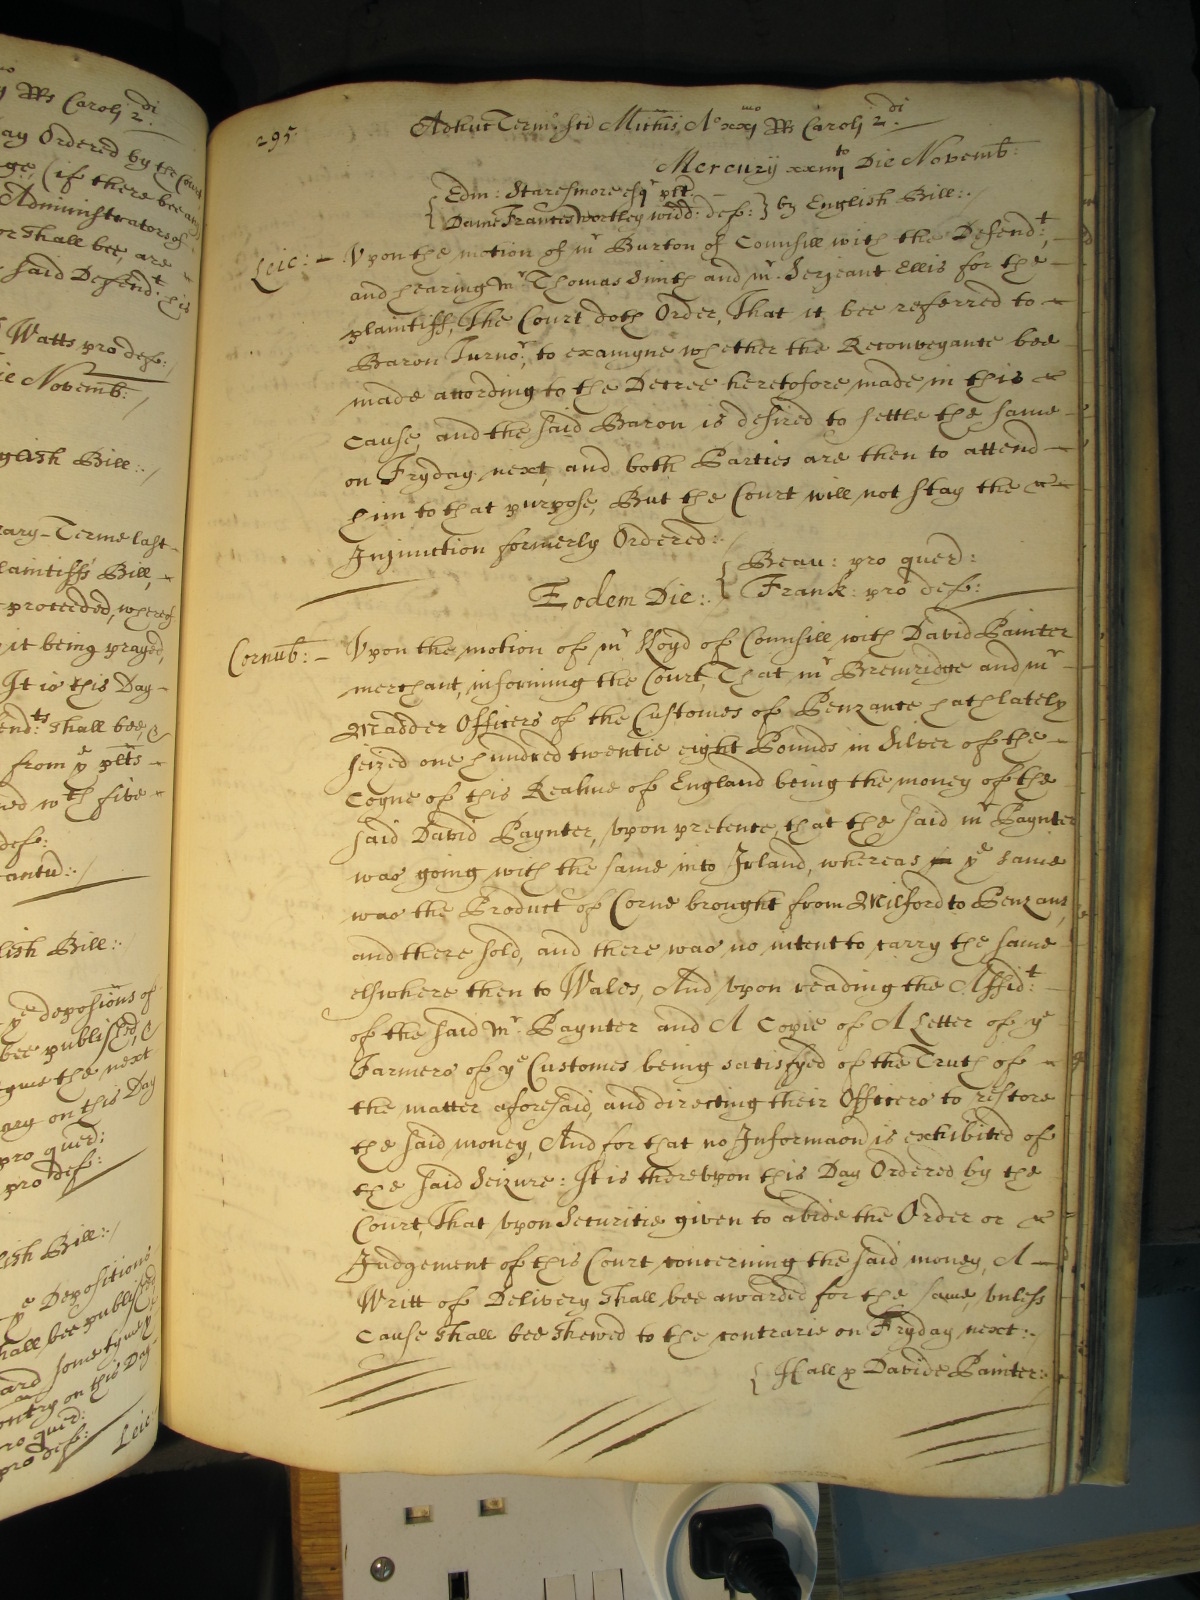 y RRs Caroli 2di:
ay Ordered by the Court
ge, (if there bee any)
Administrators of
or shall bee, are
said Defendt: his
Watts pro def:
ie Novemb:
glish Bill:
ary-Terme last
laintiffs Bill,
proceeded, whereof
it being prayed,
It is this Day
endts: shall bee, &
from ye plts
ed wth five
def:
antu:
lish Bill:
ye deposions of
bee published, &
gme the next
any on this Day
pro quer:
pro def:
lish Bill:
ye Depositions
hall bee published
ard some tyme
ontry on this Day
ro quer:
pro def:
Leic:
295
Adhuc Term: Sti Michis, Ao xximo RRs Caroli 2di:
Mercurij xxiiijto Die Novemb:
Edm: Staresmore esqr plt
Dame Frances Wortley widd: def: } by English Bill:
Leic: Vpon the motion of mr Burton of Counsill with the Defendt:,
and hearing Mr Thomas Smith and mr Serjeant Ellis for the
plaintiff, The Court doth Order, That it bee referred to
Baron Turnor, to examyne whether the Reconveyance bee
made according to the Decree heretofore made in this
Cause, and the said Baron is desired to settle the same
on Fryday next, and both Parties are then to attend
him to that purpose, But the Court will not stay the
Injunction formerly Ordered:
Beau: pro quer:
Eodem Die: { Frank: pro def:
Cornub: Vpon the motion of mr Lloyd of Counsill with David Painter
merchant, informing the Court, That mr Bremridge and mr
Madder Officers of the Customes of Penzance hath lately
seized one hundred twentie eight Pounds in Silver of the
Coyne of this Realme of England being the money of the
said David Paynter, vpon pretence, that the said mr Paynter
was going with the same into Irland, whereas in ye same
was the Product of Corne brought from Milford to Penzans,
and there sold, and there was no intent to carry the same
elswhere then to Wales, And vpon reading the Affidt:
of the said Mr Paynter and A Copie of A Letter of ye
Farmers of ye Customes being satisfyed of the Truth of
the matter aforesaid, and directing their Officers to restore
the said money, And for that no Informaon is exhibited of
the said Seizure: It is therevpon this Day Ordered by the
Court, That vpon Securitie given to abide the Order or
Judgement of this Court concerning the said money, A
Writt of Delivery shall bee awarded for the same, vnless
Cause shall bee shewed to the contrarie on Fryday next:
{ Hall p Davide Painter: